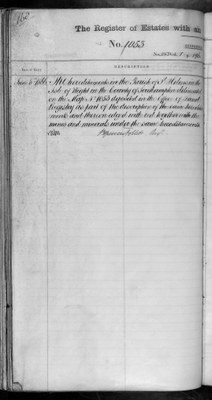 The Register of Estates with an
No. 1053
DESCRIPTION
All hereditaments in the Parish of St Helens in the
Isle of Wight in the County of Southampton delineated
on the Map No 1053 deposited in the Office of Land
Registry as part of the description of the same heredita-
ments and thereon edged with red together with the
mines and minerals under the same hereditaments